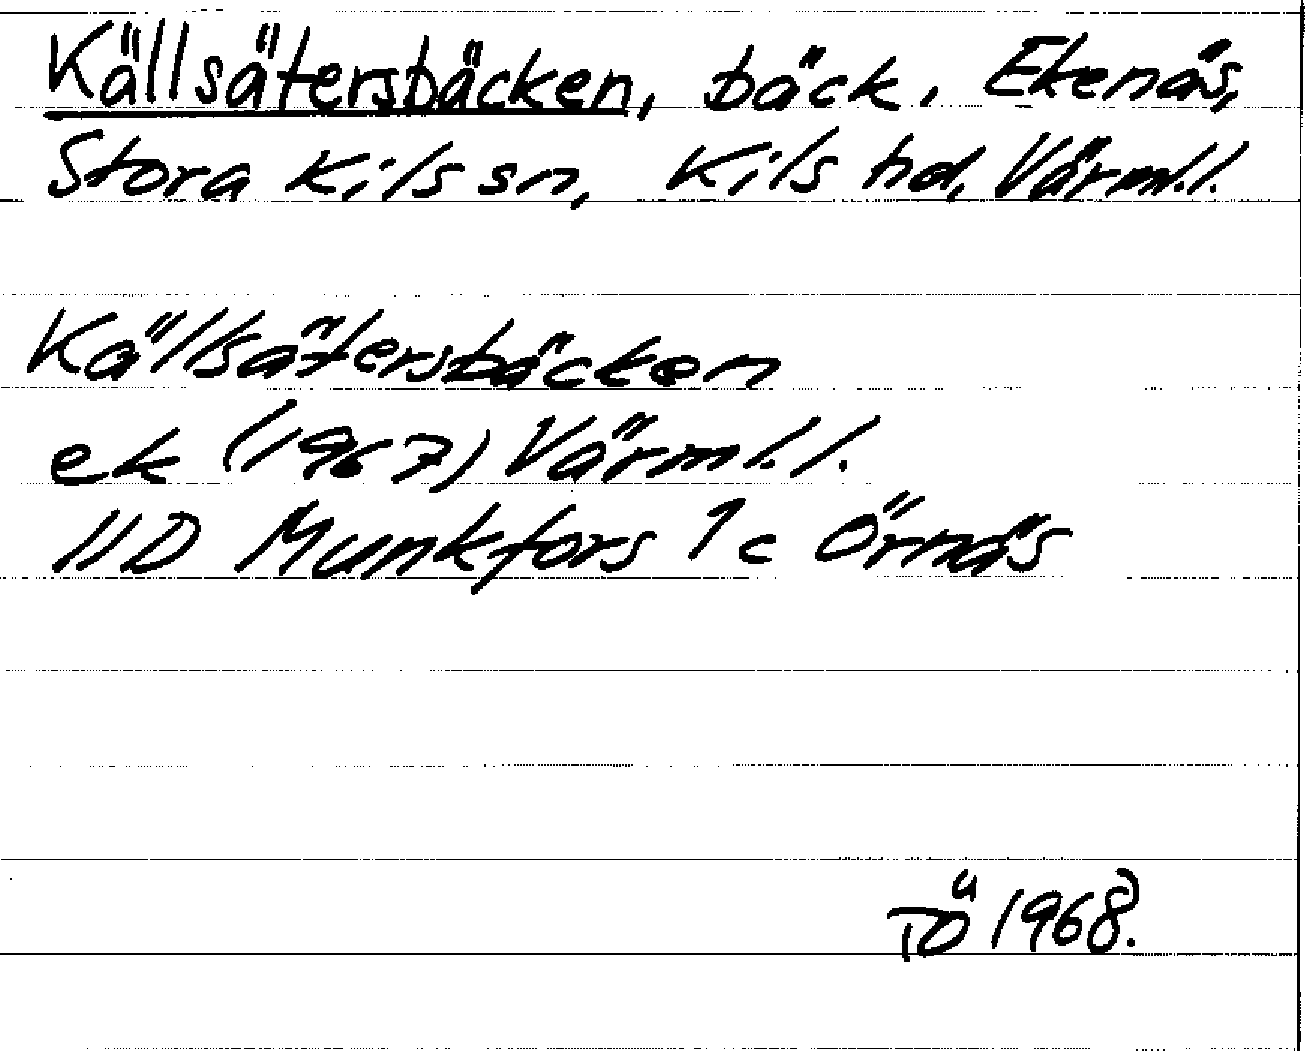 Källsätersbäcken, bäck. Ekenäs,
Stora Kils sn, Kils hd, Värml.l.
Källsätersbäcken
ek (1967) Värml.l.
11D Munkfors 1c Örnäs
TÖ 1968.